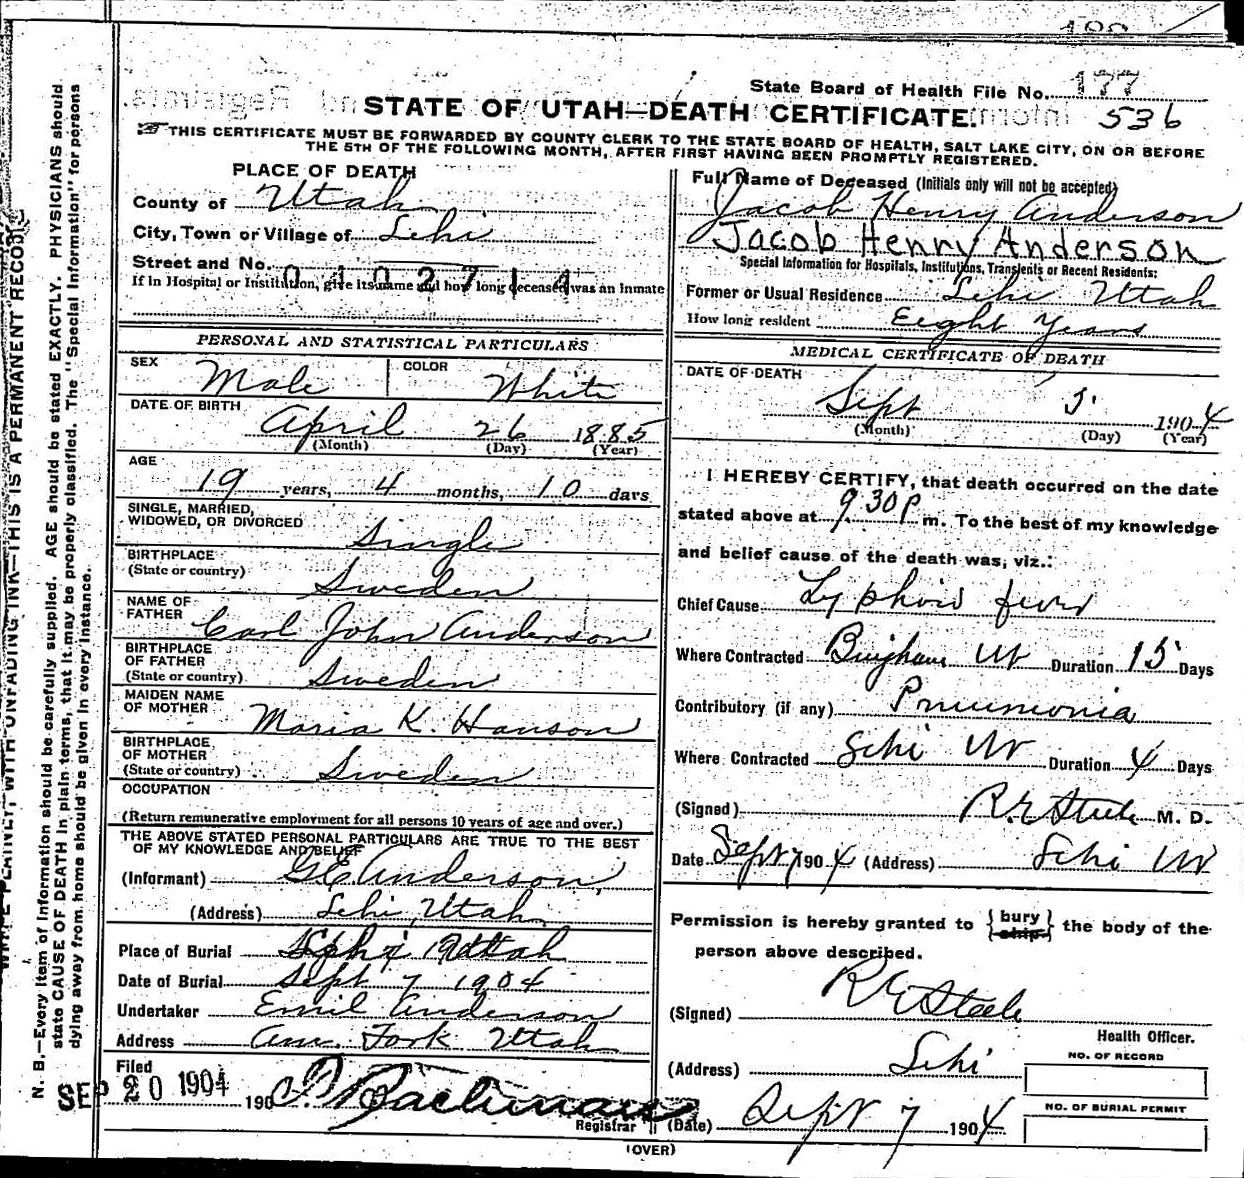 State Board of Health File No. 177
STATE OF UTAH—DEATH CERTIFICATE. 536
THIS CERTIFICATE MUST BE FORWARDED BY COUNTY CLERK TO THE STATE BOARD OF HEALTH, SALT LAKE CITY, ON OR BEFORE
THE 5TH OF THE FOLLOWING MONTH, AFTER FIRST HAVING BEEN PROMPTLY REGISTERED.
PLACE OF DEATH
County of Utah
City, Town or Village of Lehi
Street and No.
0402714
If in Hospital or Institution, give its name and how long deceased was an Inmate
PERSONAL AND STATISTICAL PARTICULARS
SEX Male COLOR White
DATE OF BIRTH
April 26 1885
(Month) (Day) (Year)
AGE
19 years, 4 months, 10 days
SINGLE, MARRIED,
WIDOWED, OR DIVORCED Single
BIRTHPLACE
(State or country) Sweden
NAME OF
FATHER Carl John Anderson
BIRTHPLACE
OF FATHER
(State or country) Sweden
MAIDEN NAME
OF MOTHER Maria K. Hanson
BIRTHPLACE
OF MOTHER
(State or country) Sweden
OCCUPATION
(Return remunerative employment for all persons 10 years of age and over.)
THE ABOVE STATED PERSONAL PARTICULARS ARE TRUE TO THE BEST
OF MY KNOWLEDGE AND BELIEF
(Informant) Anderson
(Address) Lehi, Utah
Place of Burial Lehi Utah
Date of Burial Sept 7 1904
Undertaker Emil Anderson
Address Am. Fork Utah
Filed
SEP 20 1904 190
Registrar
(OVER)
Full Name of Deceased (Initials only will not be accepted)
Jacob Henry Anderson
Jacob Henry Anderson
Special Information for Hospitals, Institutions, Transients or Recent Residents:
Former or Usual Residence Lehi Utah
How long resident Eight Years
MEDICAL CERTIFICATE OF DEATH
DATE OF DEATH
Sept 5 1904
(Month) (Day) (Year)
I HEREBY CERTIFY, that death occurred on the date
stated above at 9.30 P m. To the best of my knowledge
and belief cause of the death was, viz.:
Chief Cause Typhoid fever
Where Contracted Bingham Ut Duration 15 Days
Contributory (if any) Pneumonia
Where Contracted Lehi Ut Duration 4 Days
(Signed) R. E. Steele M. D.
Date Sept 7 1904 (Address) Lehi Ut
Permission is hereby granted to {bury ship} the body of the
person above described.
(Signed) R E Steele
Health Officer.
(Address) Lehi
NO. OF RECORD
NO. OF BURIAL PERMIT
(Date) Sept 7 1904
WRITE PLAINLY, WITH UNFADING INK—THIS IS A PERMANENT RECORD
N. B.—Every item of information should be carefully supplied. AGE should be stated EXACTLY. PHYSICIANS should
state CAUSE OF DEATH in plain terms, that it may be properly classified. The "Special Information" for persons
dying away from home should be given in every instance.